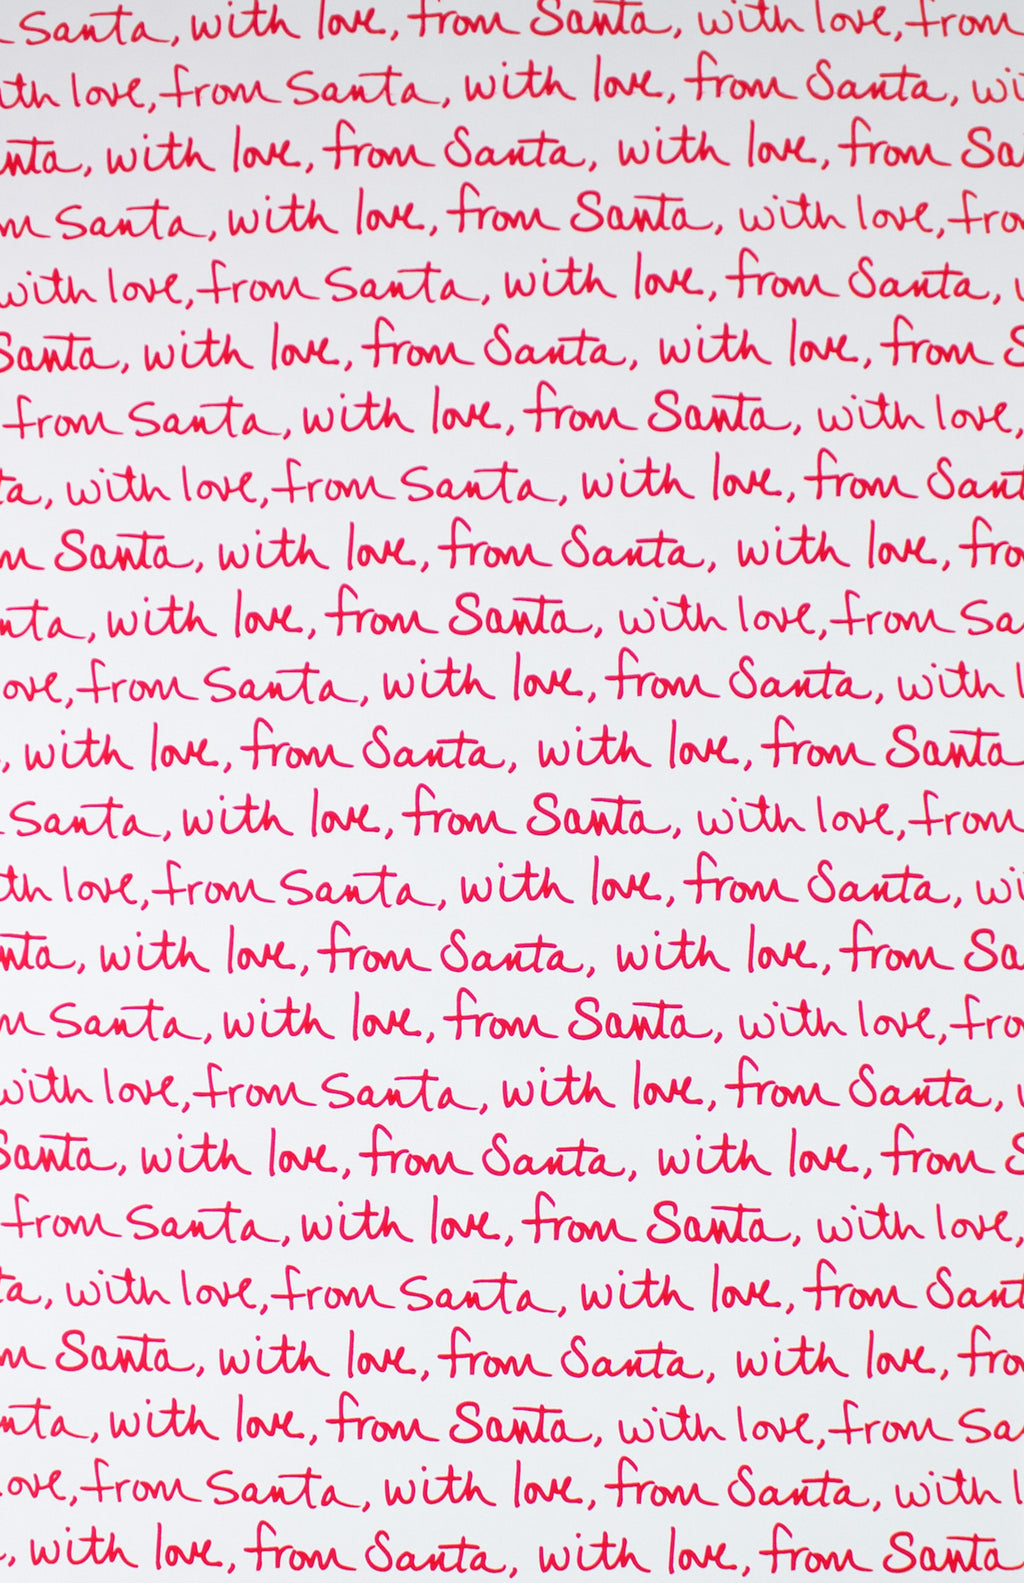 Santa, with love, from Santa, with love, from
ith love, from Santa, with love, from Santa, wi
nta, with love, from Santa, with love, from Sa
m Santa, with love, from Santa, with love, fro
with love, from Santa, with love, from Santa, w
Santa, with love, from Santa, with love, from S
from Santa, with love, from Santa, with love,
ta, with love, from Santa, with love, from Sant
m Santa, with love, from Santa, with love, fro
nta, with love, from Santa, with love, from Sa
ove, from Santa, with love, from Santa, with l
, with love, from Santa, with love, from Santa
Santa, with love, from Santa, with love, from
th love, from Santa, with love, from Santa, wi
nta, with love, from Santa, with love, from Sa
m Santa, with love, from Santa, with love, fro
with love, from Santa, with love, from Santa, w
Santa, with love, from Santa, with love, from S
from Santa, with love, from Santa, with love,
ta, with love, from Santa, with love, from Sant
m Santa, with love, from Santa, with love, fro
nta, with love, from Santa, with love, from Sa
ove, from Santa, with love, from Santa, with l
, with love, from Santa, with love, from Santa